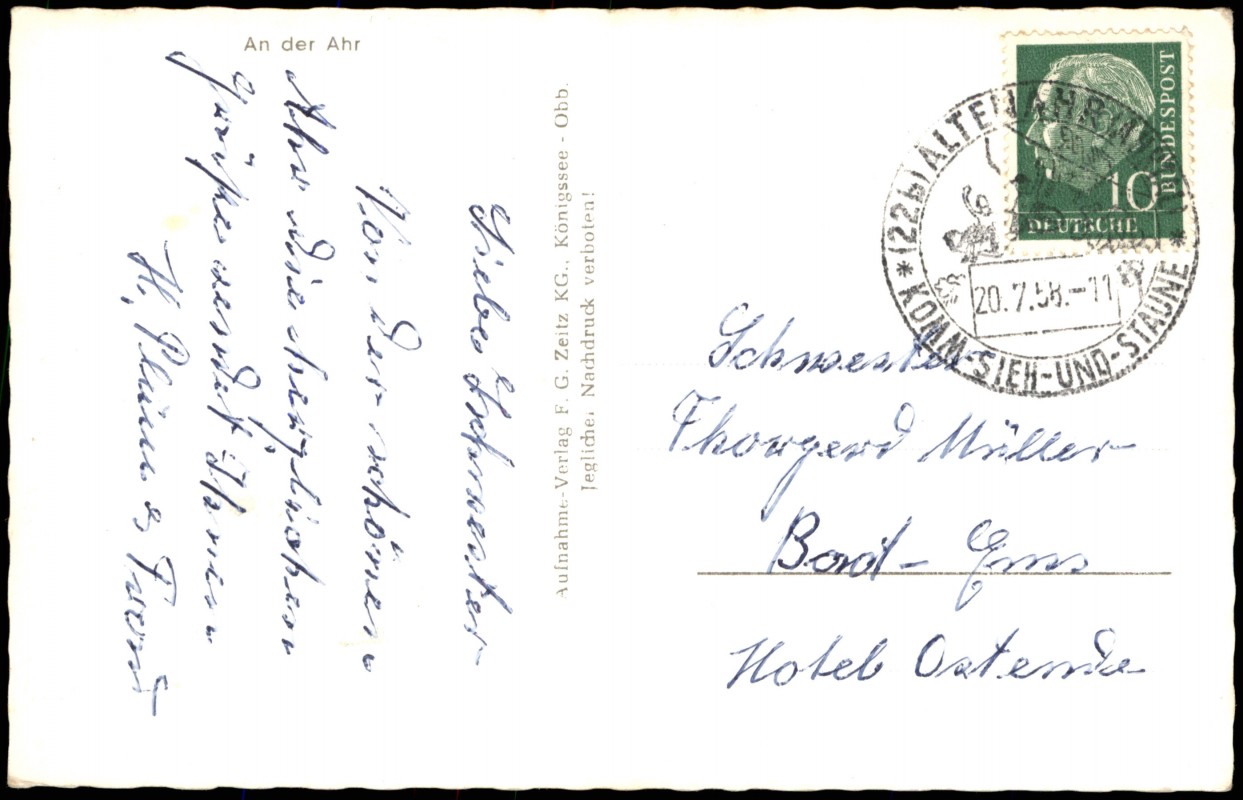 An der Ahr
Liebe Schwester
Von der schönen
Ahr die herzlichen
Grüße sendet Ihnen
H.
Aufnahme-Verlag F. G. Zeitz KG., Königssee - Obb.
Jeglicher Nachdruck verboten!
DEUTSCHE
BUNDESPOST
10
(22b) ALTENAHR
20.7.58.-11
KOMM-SIEH-UND-STAUNE
Schwester
Thorgerd Müller
Bad-Ems
Hotel Ostende